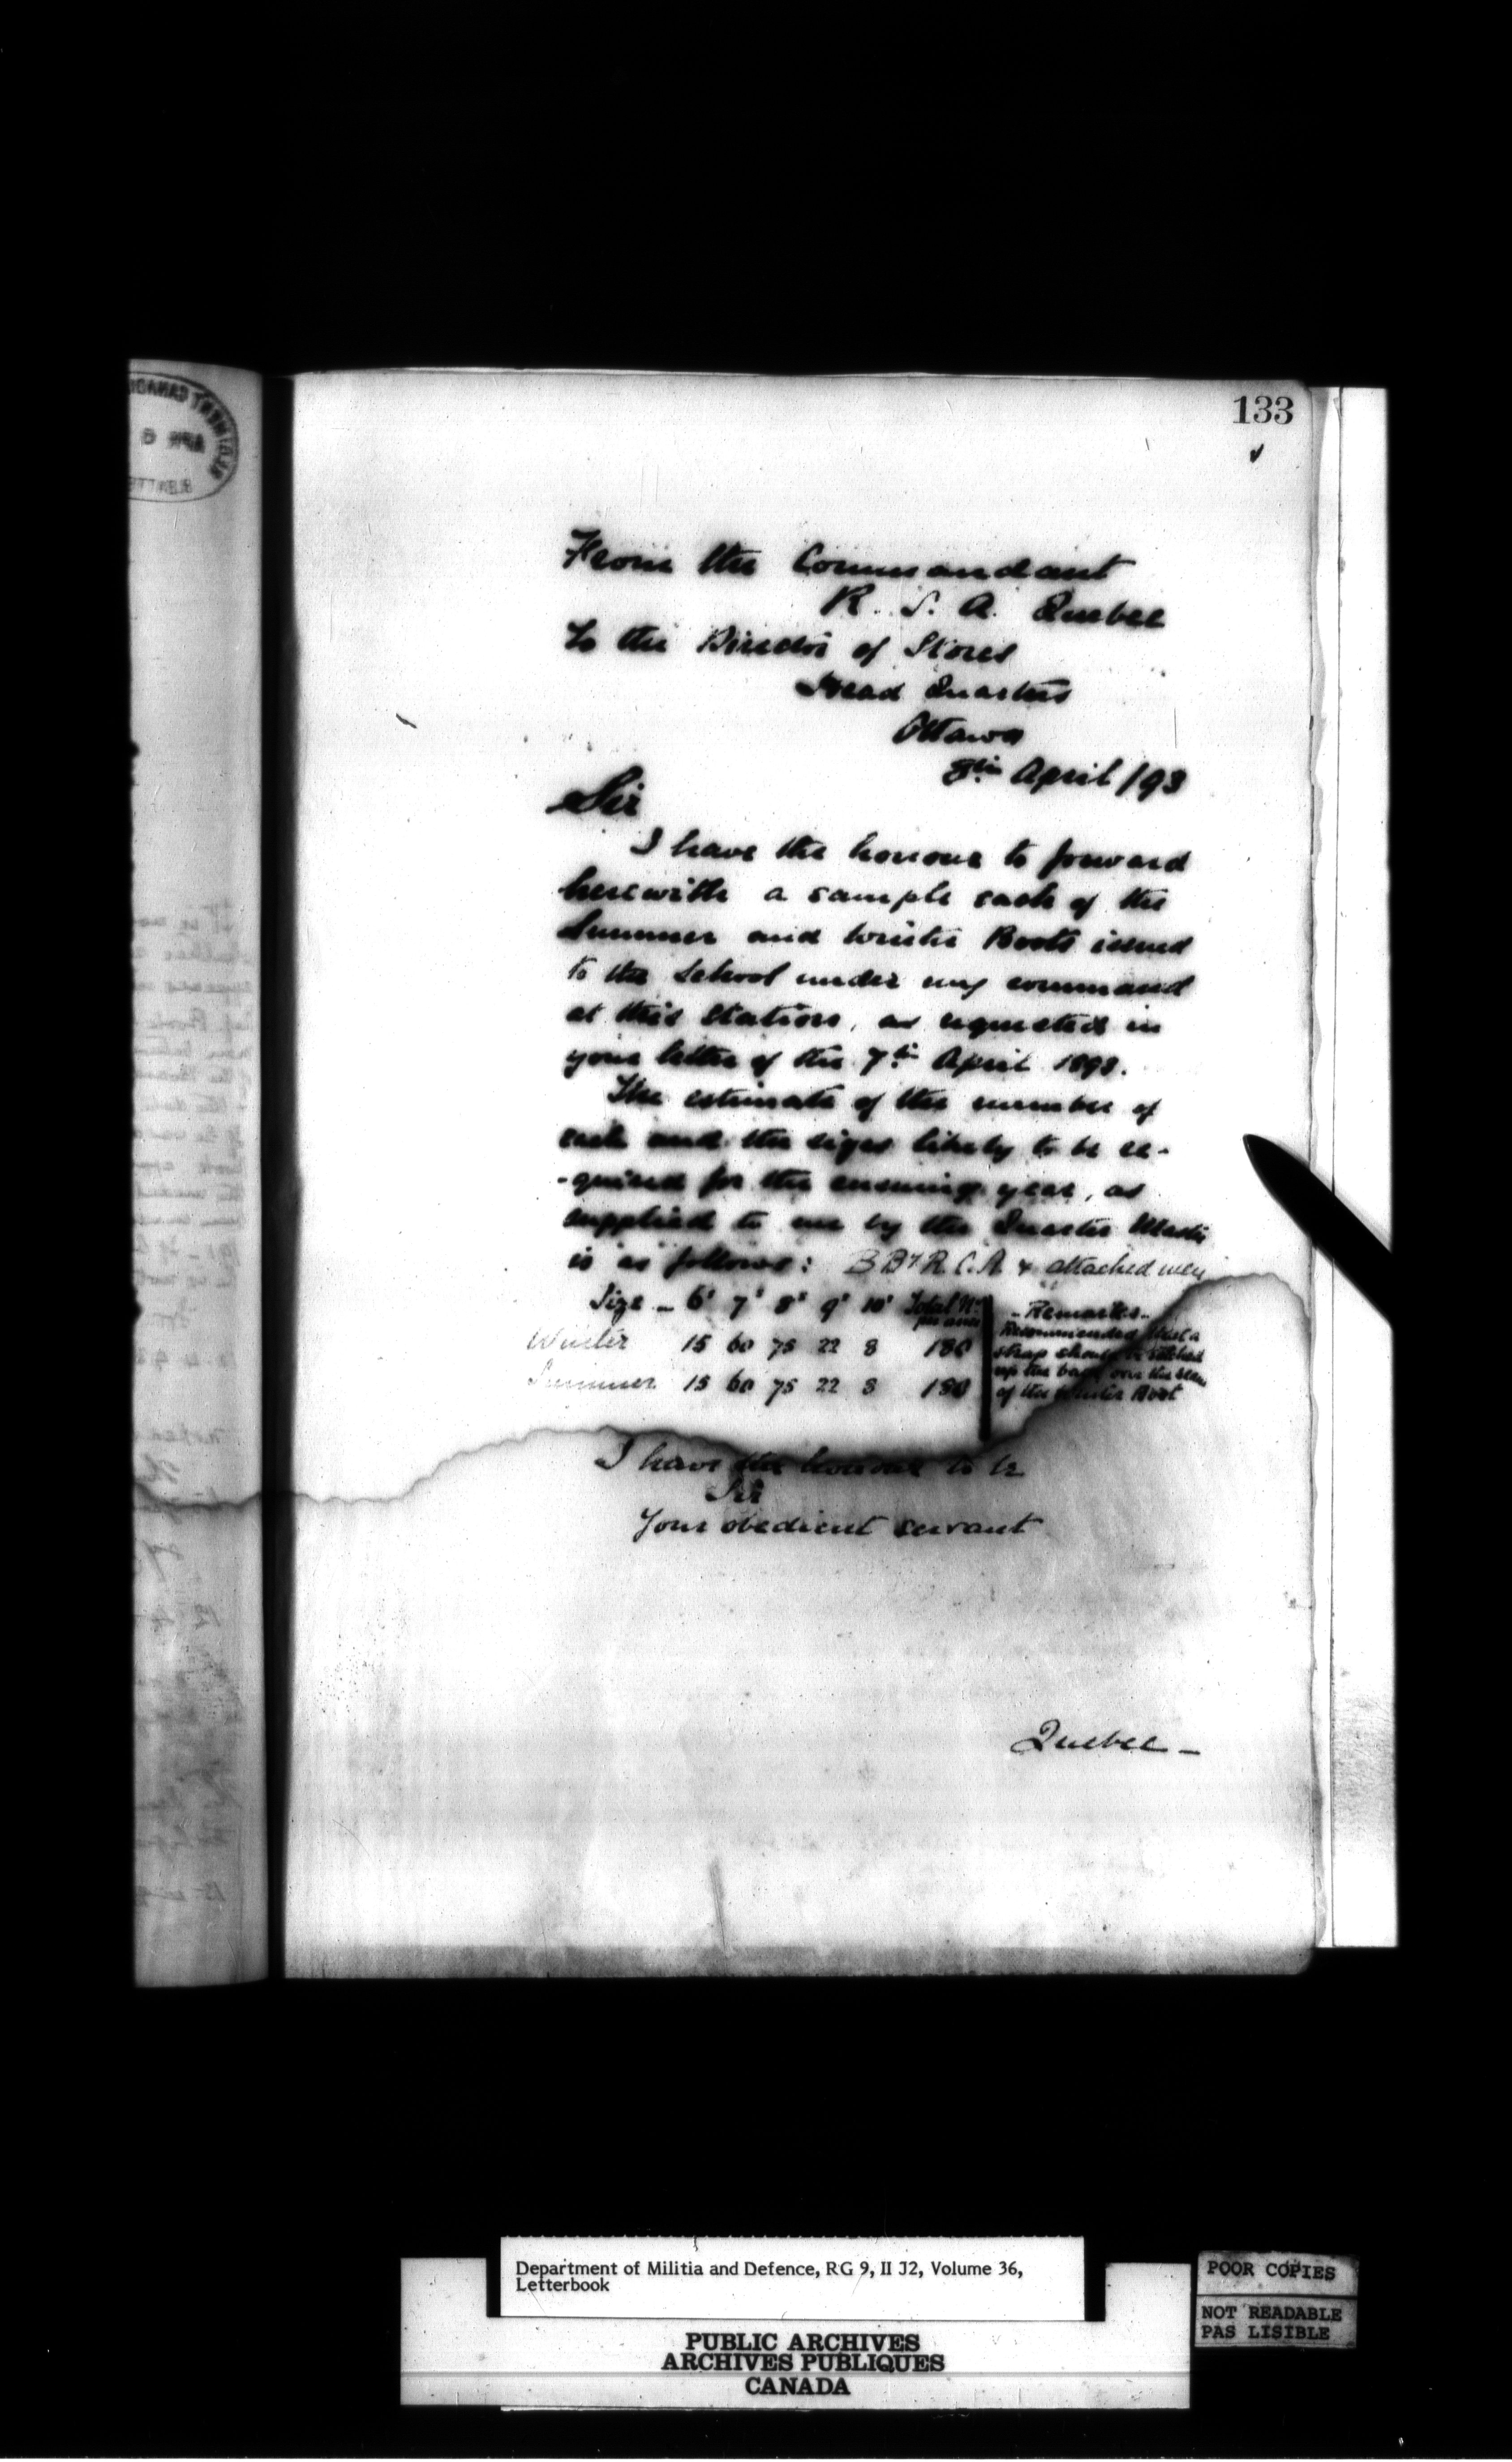 133
From the Commandant
R. S. A. Quebec
To the Director of Stores
Head Quarters
Ottawa
8th April /93
Sir
I have the honour to forward
herewith a sample each of the
Summer and Winter Boots issued
to the School under my command
at this Station, as requested in
your letter of the 7th April 1893.
The estimate of the number of
each and the sizes likely to be re-
-quired for the ensuing year, as
supplied to me by the Quarter Master
is as follows: B By R.C.A & attached men
Size - 6s 7s 8s 9s 10s Total No. per ann
Winter 15 60 75 22 8 180
Summer 15 60 75 22 8 180
- Remarks -
Recommended that a
strap should be stitched
up the back over the seam
of the Winter Boot
I have the honour to be
Sir
Your obedient servant
Quebec -
Department of Militia and Defence, RG 9, II J2, Volume 36,
Letterbook
PUBLIC ARCHIVES
ARCHIVES PUBLIQUES
CANADA
POOR COPIES
NOT READABLE
PAS LISIBLE